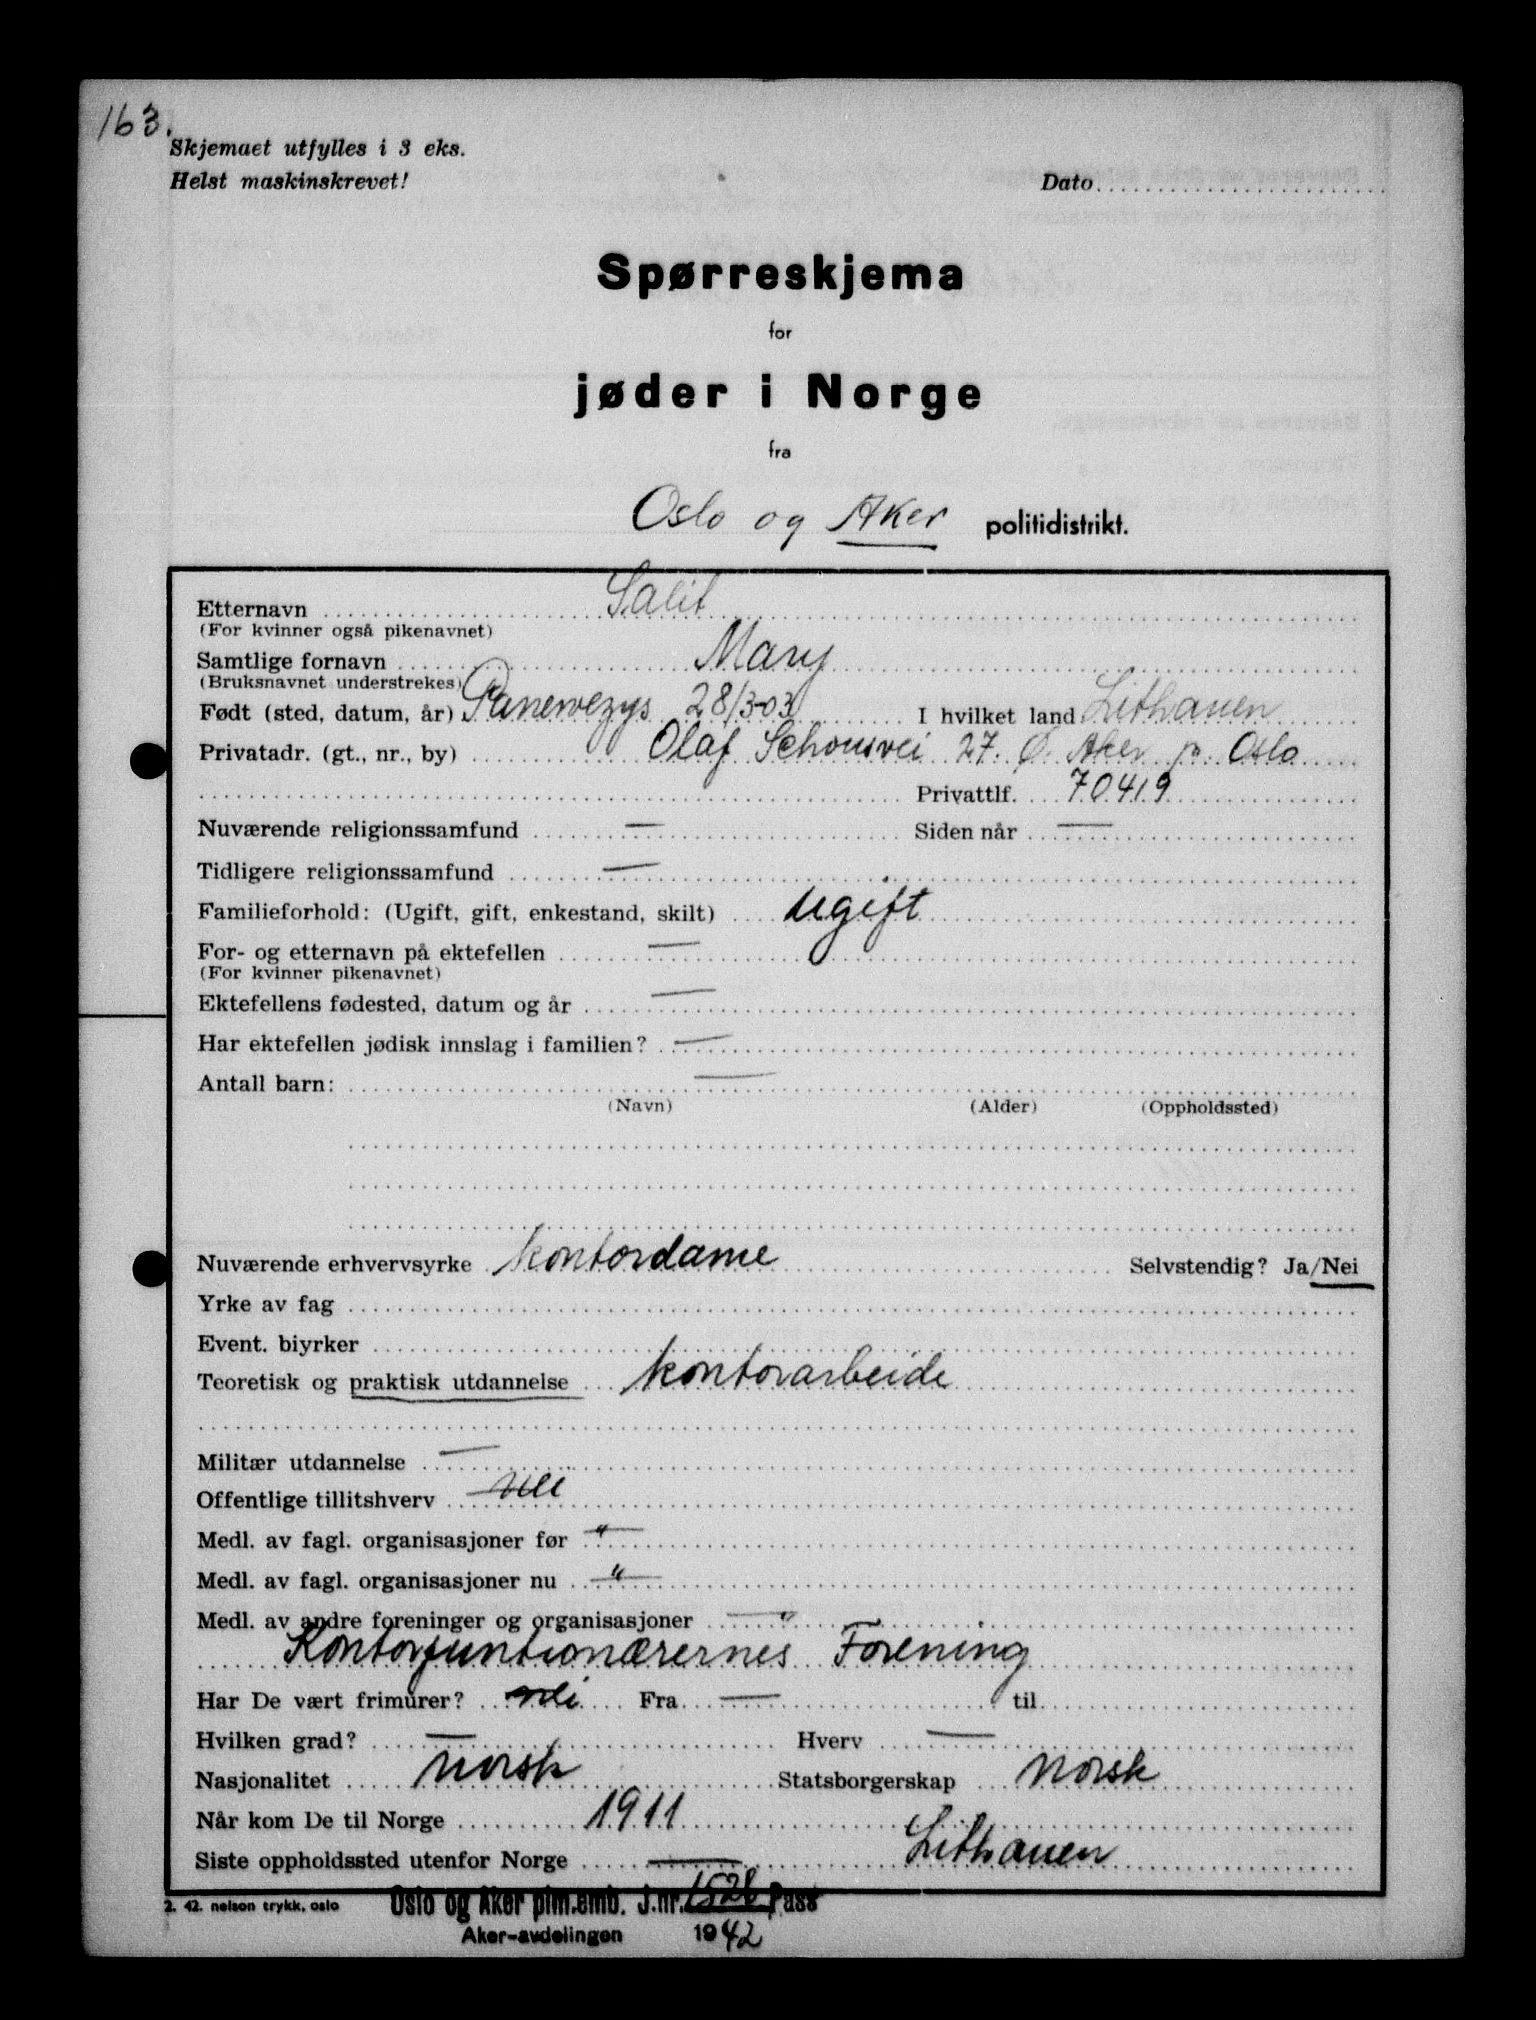 163.
Skjemaet utfylles i 3 eks.
Helst maskinskrevet!
Dato
Spørreskjema
for
jøder i Norge
fra
Oslo og Aker politidistrikt.
Etternavn Salit
(For kvinner også pikenavnet)
Samtlige fornavn Mary
(Bruksnavnet understrekes)
Født (sted, datum, år) Panevezys 28/3-03 I hvilket land Lithauen
Privatadr. (gt., nr., by) Olaf Schousvei 27. Ø. Aker pr. Oslo
Privattlf. 70419
Nuværende religionssamfund — Siden når —
Tidligere religionssamfund —
Familieforhold: (Ugift, gift, enkestand, skilt) Ugift
For- og etternavn på ektefellen —
(For kvinner pikenavnet)
Ektefellens fødested, datum og år —
Har ektefellen jødisk innslag i familien? —
Antall barn: —
(Navn) (Alder) (Oppholdssted)
Nuværende erhvervsyrke kontordame Selvstendig? Ja/Nei
Yrke av fag
Event. biyrker
Teoretisk og praktisk utdannelse kontorarbeide
Militær utdannelse —
Offentlige tillitshverv nei
Medl. av fagl. organisasjoner før "
Medl. av fagl. organisasjoner nu "
Medl. av andre foreninger og organisasjoner "
Kontorfuntionærernes Forening
Har De vært frimurer? nei Fra — til
Hvilken grad? — Hverv —
Nasjonalitet norsk Statsborgerskap norsk
Når kom De til Norge 1911
Siste oppholdssted utenfor Norge — Lithauen
2. 42. nelson trykk, oslo
Oslo og Aker plm.emb. J.nr. 1528 Pass
Aker-avdelingen 1942